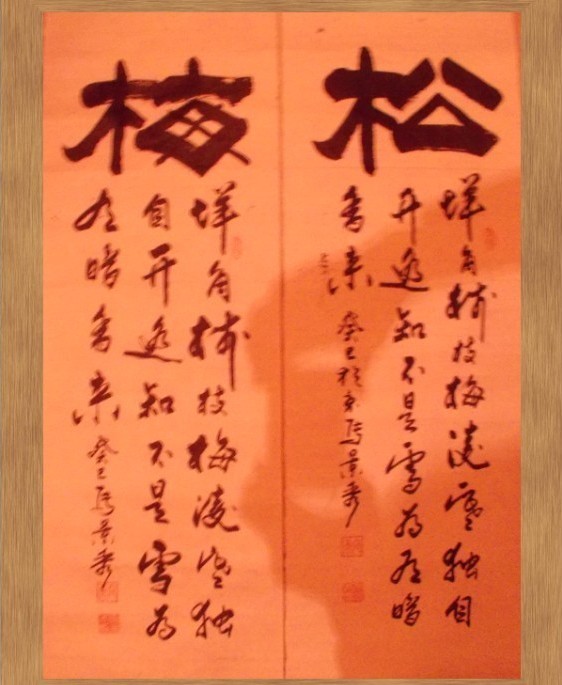 松
墙角数枝梅凌寒独自
开遥知不是雪为有暗
香来 癸巳 京 景秀
梅
墙角数枝梅凌寒独
自开遥知不是雪为
有暗香来 癸巳 景秀